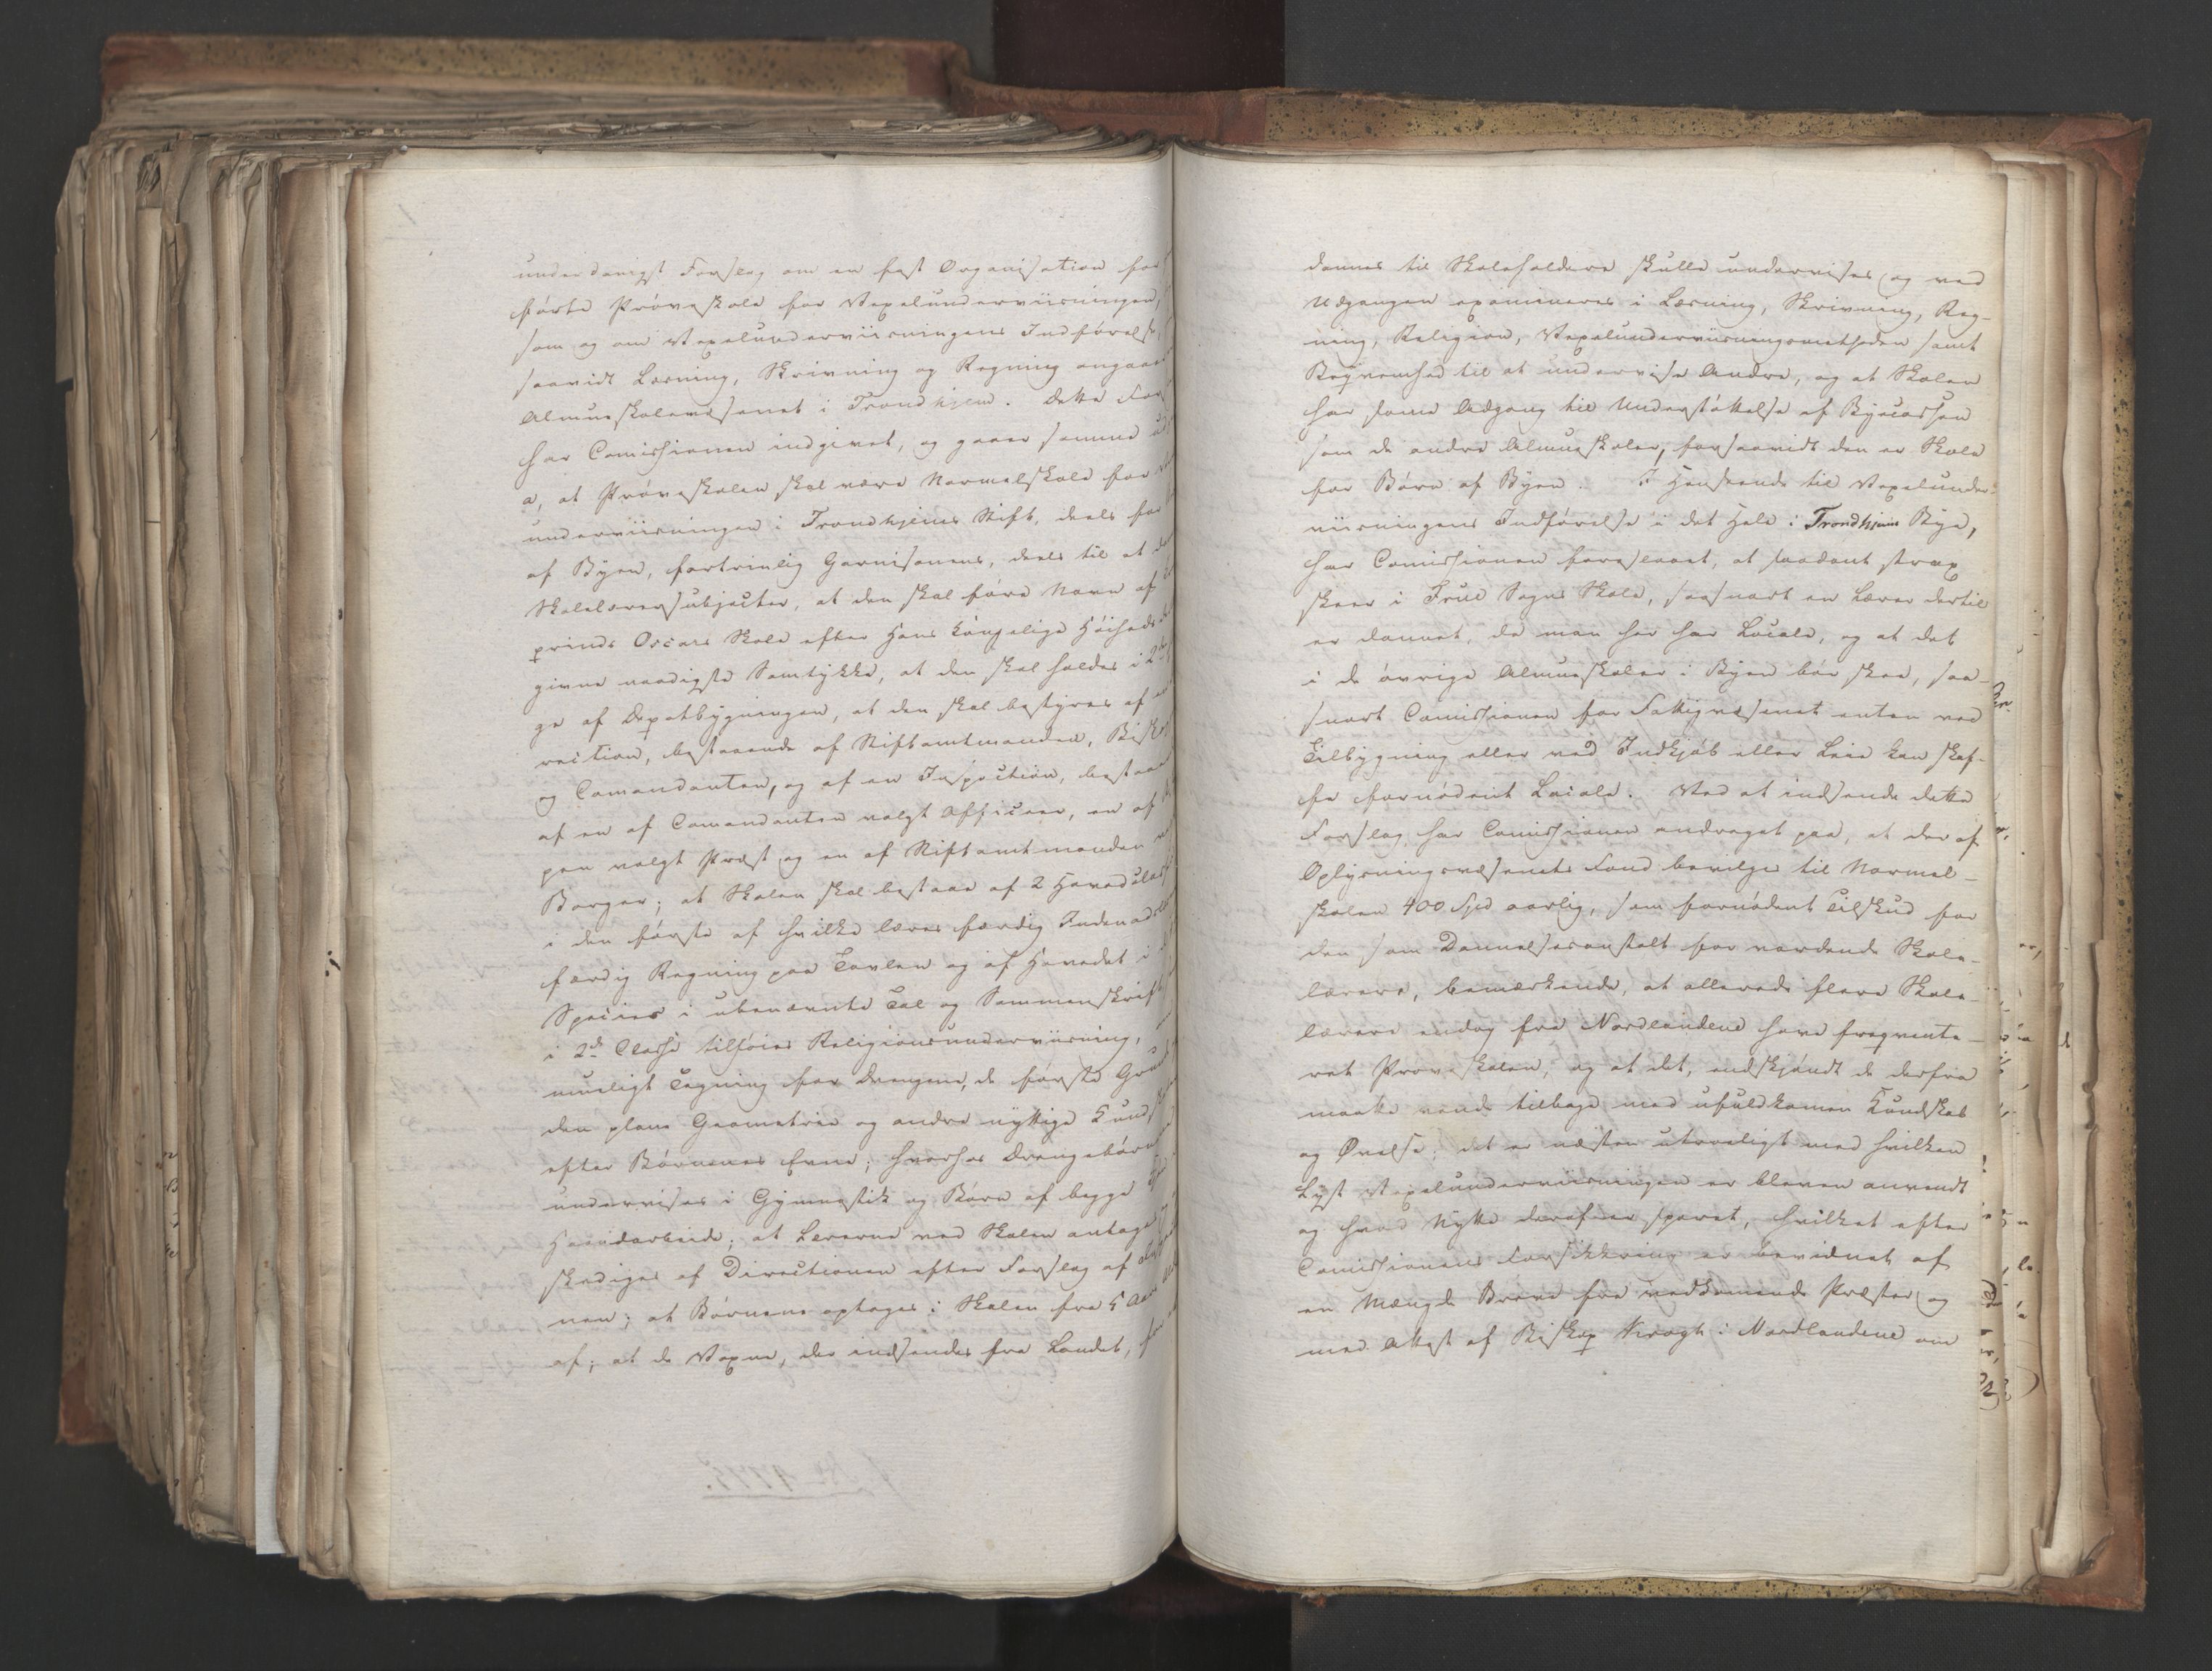 underdanigst Forslag om en fast Organisation for
førte Prøveskole for Vexelunderviisningen,
som og om Vexelunderviisningens Indførelse,
saavidt Læsning, Skrivning og Regning angaaer
Almueskolevæsenet i Trondhjem. Dette For
har Comissionen indgivet, og gaaer samme ud
a, at Prøveskolen skal være Normalskole for
underviisningen i Trondhjems Stift, deels for
af Byen, fortrinlig Garnisonens, deels til at
Skolelærersubjecter, at den skal føre Navn af
prinds Oscars Skole efter Hans Kongelige Høiheds
givne naadigste Samtykke, at den skal holdes i 2
ge af Depotbygningen, at den skal bestyres af en
rection, bestaaende af Stiftamtmanden, Bisko
og Comandanten, og af en Inspection, bestaae
af en af Comandanten valgt Officeer, en af
pen valgt Præst og en af Stiftamtmanden
Borger; at Skolen skal bestaae af 2 Hovedclas
i den første af hvilke læres færdig Indenad
færdig Regning paa Tavlen og af Hovedet i
Species i ubenævnte Tal og Sammenskrift
i 2d Classe tilføies Religionsunderviisning,
mueligt Tegning for Drengene, de første Gru
den plane Geometrie og andre nyttige Kundska
efter Børnenes Evne; hvorhos Drengebørn
undervises i Gymnastik og Børn af begge
Haandarbeide; at Lærerne ved Skolen antage
skediges af Directionen efter Forslag af
nen; at Børnene optages i Skolen fra 5 Aar
af; at de Voxne, der indsendes fra Landet,
dannes til Skoleholdere skulle undervises og ved
Udgangen examineres i Læsning, Skrivning, Reg-
ning, Religion, Vexelunderviisningsmethoden samt
Beqvemhed til at undervise Andre, og at Skolen
har samme Adgang til Understøttelse af Bycassen
som de andre Almueskoler, forsaavidt den er Skole
for Børn af Byen. I Henseende til Vexelunder-
viisningens Indførelse i det Hele i Trondhjems Bye,
har Comissionen foreslaaet, at saadant strax
skeer i Frue Sogns Skole, saasnart en Lærer dertil
er dannet, da man her har Locale, og at det
i de øvrige Almueskoler i Byen bør skee, saa-
snart Comissionen for Fattigvæsenet enten ved
Tilbygning eller ved Indkjøb eller Leie kan skaf-
fe fornødent Locale. Ved at indsende dette
Forslag har Comissionen andraget paa, at der af
Oplysningsvæsenets Fond bevilges til Normal-
skolen 400 Spd aarlig, som fornødent Tilskud for
den som Dannelsesanstalt for vordende Skole-
lærere, bemærkende, at allerede flere Skole-
lærere endog fra Nordlandene have freqvente-
ret Prøveskolen, og at det, endskjøndt de derfra
maatte vende tilbage med ufuldkomen Kundskab
og Øvelse, det er næsten utroeligt med hvilken
Lyst Vexelunderviisningen er bleven anvendt
og hvad Nytte deraf er sporet, hvilket efter
Comissionens Forsikkring er bevidnet af
en Mængde Breve fra vedkomende Præster og
med Attest af Biskop Krogh i Nordlandene om